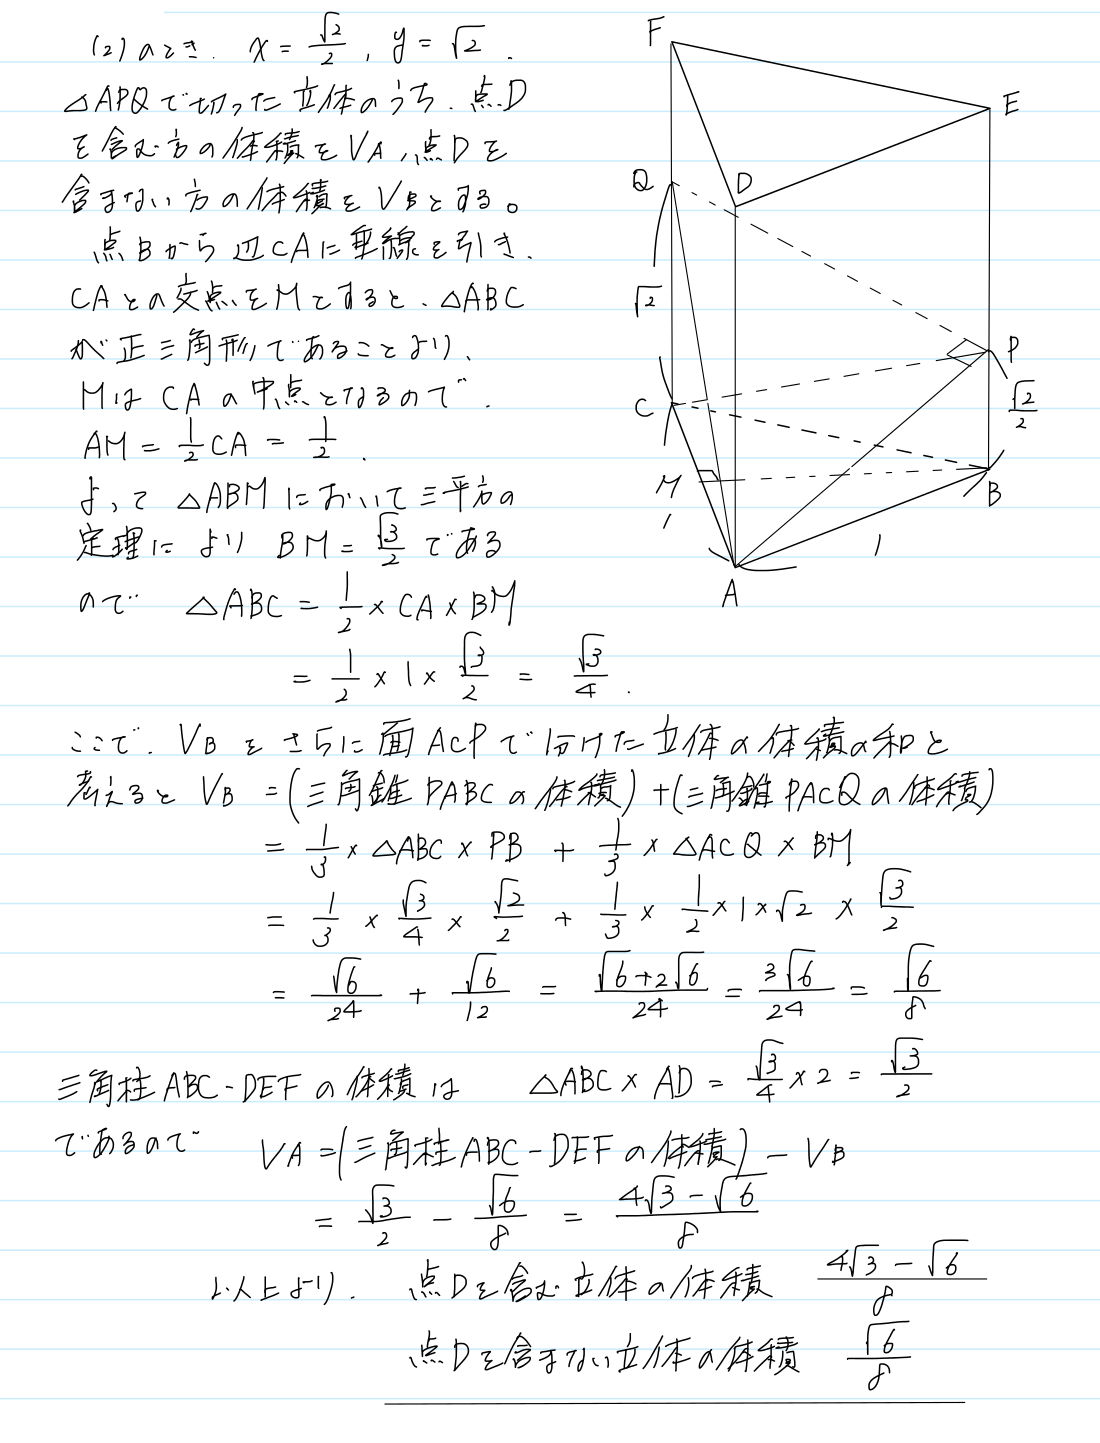 (2)のとき. x = √2/2 , y = √2 .
△APQで切った立体のうち、点D
を含む方の体積をVA、点Dを
含まない方の体積をVBとする。
点Bから辺CAに垂線を引き、
CAとの交点をMとすると、△ABC
が正三角形であることより、
MはCAの中点となるので、
AM = 1/2 CA = 1/2 .
よって△ABMにおいて三平方の
定理により BM = √3/2 である
ので △ABC = 1/2 × CA × BM
= 1/2 × 1 × √3/2 = √3/4 .
ここで、VBをさらに面ACPで分けた立体の体積の和と
考えると VB = (三角錐PABCの体積) + (三角錐PACQの体積)
= 1/3 × △ABC × PB + 1/3 × △ACQ × BM
= 1/3 × √3/4 × √2/2 + 1/3 × 1/2 × 1 × √2 × √3/2
= √6/24 + √6/12 = (√6+2√6)/24 = 3√6/24 = √6/8
三角柱ABC-DEFの体積は △ABC × AD = √3/4 × 2 = √3/2
であるので VA = (三角柱ABC-DEFの体積) - VB
= √3/2 - √6/8 = (4√3 - √6)/8
以上より. 点Dを含む立体の体積 (4√3 - √6)/8
点Dを含まない立体の体積 √6/8
F
E
Q
D
√2
P
C
√2/2
M
B
1
1
A